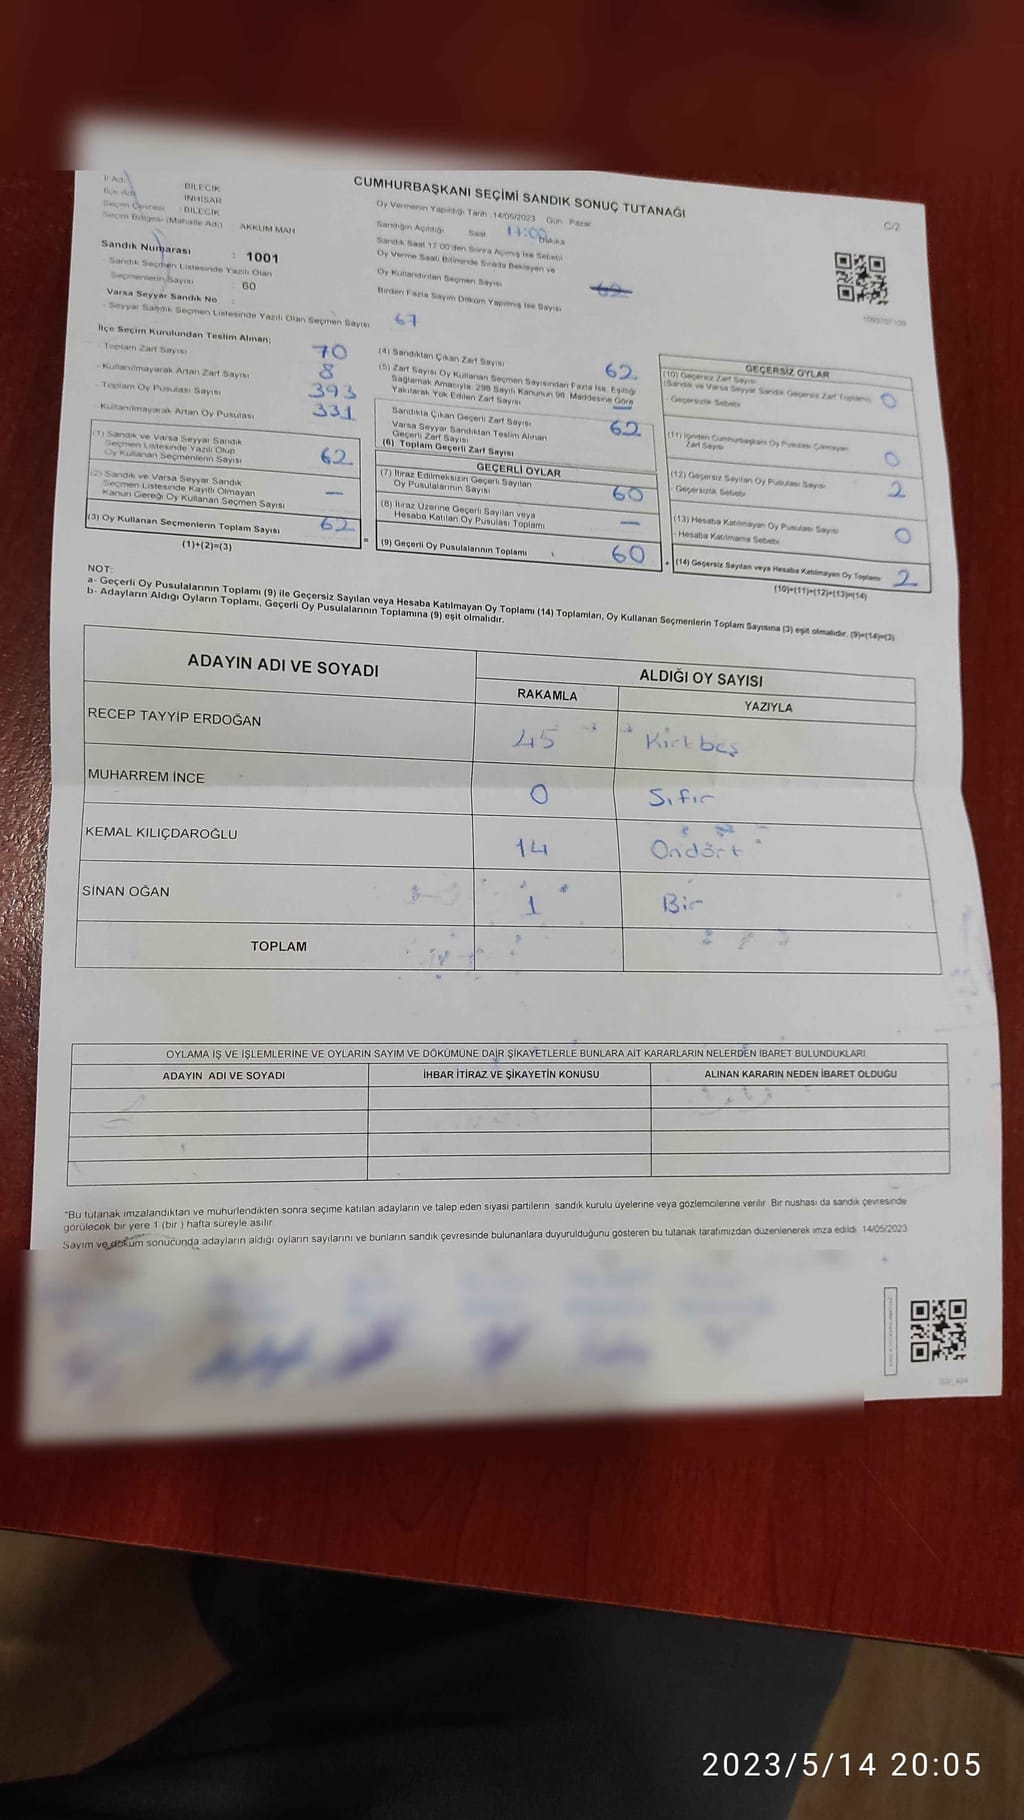 CUMHURBAŞKANI SEÇİMİ SANDIK SONUÇ TUTANAĞI
C/2
İl Adı
BİLECİK
İlçe Adı
İNHİSAR
Seçim Çevresi : BİLECİK
Seçim Bölgesi (Mahalle Adı) AKKUM MAH
Sandık Numarası : 1001
- Sandık Seçmen Listesinde Yazılı Olan
Seçmenlerin Sayısı : 60
Varsa Seyyar Sandık No :
- Seyyar Sandık Seçmen Listesinde Yazılı Olan Seçmen Sayısı
Oy Vermenin Yapıldığı Tarih :14/05/2023 Gün : Pazar
Sandığın Açıldığı Saat 17:00 Dakika
Sandık Saat 17:00'den Sonra Açımış İse Sebebi
Oy Verme Saati Bitiminde Sırada Bekleyen ve
Oy Kullandırılan Seçmen Sayısı
62
Birden Fazla Sayım Döküm Yapılmış İse Sayısı
67
İlçe Seçim Kurulundan Teslim Alınan;
- Toplam Zarf Sayısı 70
- Kullanılmayarak Artan Zarf Sayısı 8
- Toplam Oy Pusulası Sayısı 393
Kullanılmayarak Artan Oy Pusulası 331
(1) Sandık ve Varsa Seyyar Sandık
Seçmen Listesinde Yazılı Olup
Oy Kullanan Seçmenlerin Sayısı 62
(2) Sandık ve Varsa Seyyar Sandık
Seçmen Listesinde Kayıtlı Olmayan
Kanun Gereği Oy Kullanan Seçmen Sayısı —
(3) Oy Kullanan Seçmenlerin Toplam Sayısı 62
(1)+(2)=(3)
(4) Sandıktan Çıkan Zarf Sayısı 62
(5) Zarf Sayısı Oy Kullanan Seçmen Sayısından Fazla İse, Eşitliği
Sağlamak Amacıyla, 298 Sayılı Kanunun 98. Maddesine Göre
Yakılarak Yok Edilen Zarf Sayısı —
Sandıkta Çıkan Geçerli Zarf Sayısı 62
Varsa Seyyar Sandıktan Teslim Alınan
Geçerli Zarf Sayısı
(6) Toplam Geçerli Zarf Sayısı
GEÇERLİ OYLAR
(7) İtiraz Edilmeksizin Geçerli Sayılan
Oy Pusulalarının Sayısı 60
(8) İtiraz Üzerine Geçerli Sayılan veya
Hesaba Katılan Oy Pusulası Toplamı —
(9) Geçerli Oy Pusulalarının Toplamı 60
GEÇERSİZ OYLAR
(10) Geçersiz Zarf Sayısı
(Sandık ve Varsa Seyyar Sandık Geçersiz Zarf Toplamı) 0
- Geçersizlik Sebebi
(11) İçinden Cumhurbaşkanı Oy Pusulası Çıkmayan
Zarf Sayısı 0
(12) Geçersiz Sayılan Oy Pusulası Sayısı 2
- Geçersizlik Sebebi
(13) Hesaba Katılmayan Oy Pusulası Sayısı 0
- Hesaba Katılmama Sebebi
(14) Geçersiz Sayılan veya Hesaba Katılmayan Oy Toplamı 2
(10)+(11)+(12)+(13)=(14)
NOT:
a- Geçerli Oy Pusulalarının Toplamı (9) ile Geçersiz Sayılan veya Hesaba Katılmayan Oy Toplamı (14) Toplamları, Oy Kullanan Seçmenlerin Toplam Sayısına (3) eşit olmalıdır. (9)+(14)=(3)
b- Adayların Aldığı Oyların Toplamı, Geçerli Oy Pusulalarının Toplamına (9) eşit olmalıdır.
ADAYIN ADI VE SOYADI
ALDIĞI OY SAYISI
RAKAMLA YAZIYLA
RECEP TAYYİP ERDOĞAN 45 Kırkbeş
MUHARREM İNCE 0 Sıfır
KEMAL KILIÇDAROĞLU 14 Ondört
SİNAN OĞAN 1 Bir
TOPLAM
OYLAMA İŞ VE İŞLEMLERİNE VE OYLARIN SAYIM VE DÖKÜMÜNE DAİR ŞİKAYETLERLE BUNLARA AİT KARARLARIN NELERDEN İBARET BULUNDUKLARI
ADAYIN ADI VE SOYADI İHBAR İTİRAZ VE ŞİKAYETİN KONUSU ALINAN KARARIN NEDEN İBARET OLDUĞU
*Bu tutanak imzalandıktan ve mühürlendikten sonra seçime katılan adayların ve talep eden siyasi partilerin sandık kurulu üyelerine veya gözlemcilerine verilir. Bir nushası da sandık çevresinde
görülecek bir yere 1 (bir ) hafta süreyle asılır.
Sayım ve döküm sonucunda adayların aldığı oyların sayılarını ve bunların sandık çevresinde bulunanlara duyurulduğunu gösteren bu tutanak tarafımızdan düzenlenerek imza edildi. 14/05/2023
2023/5/14 20:05